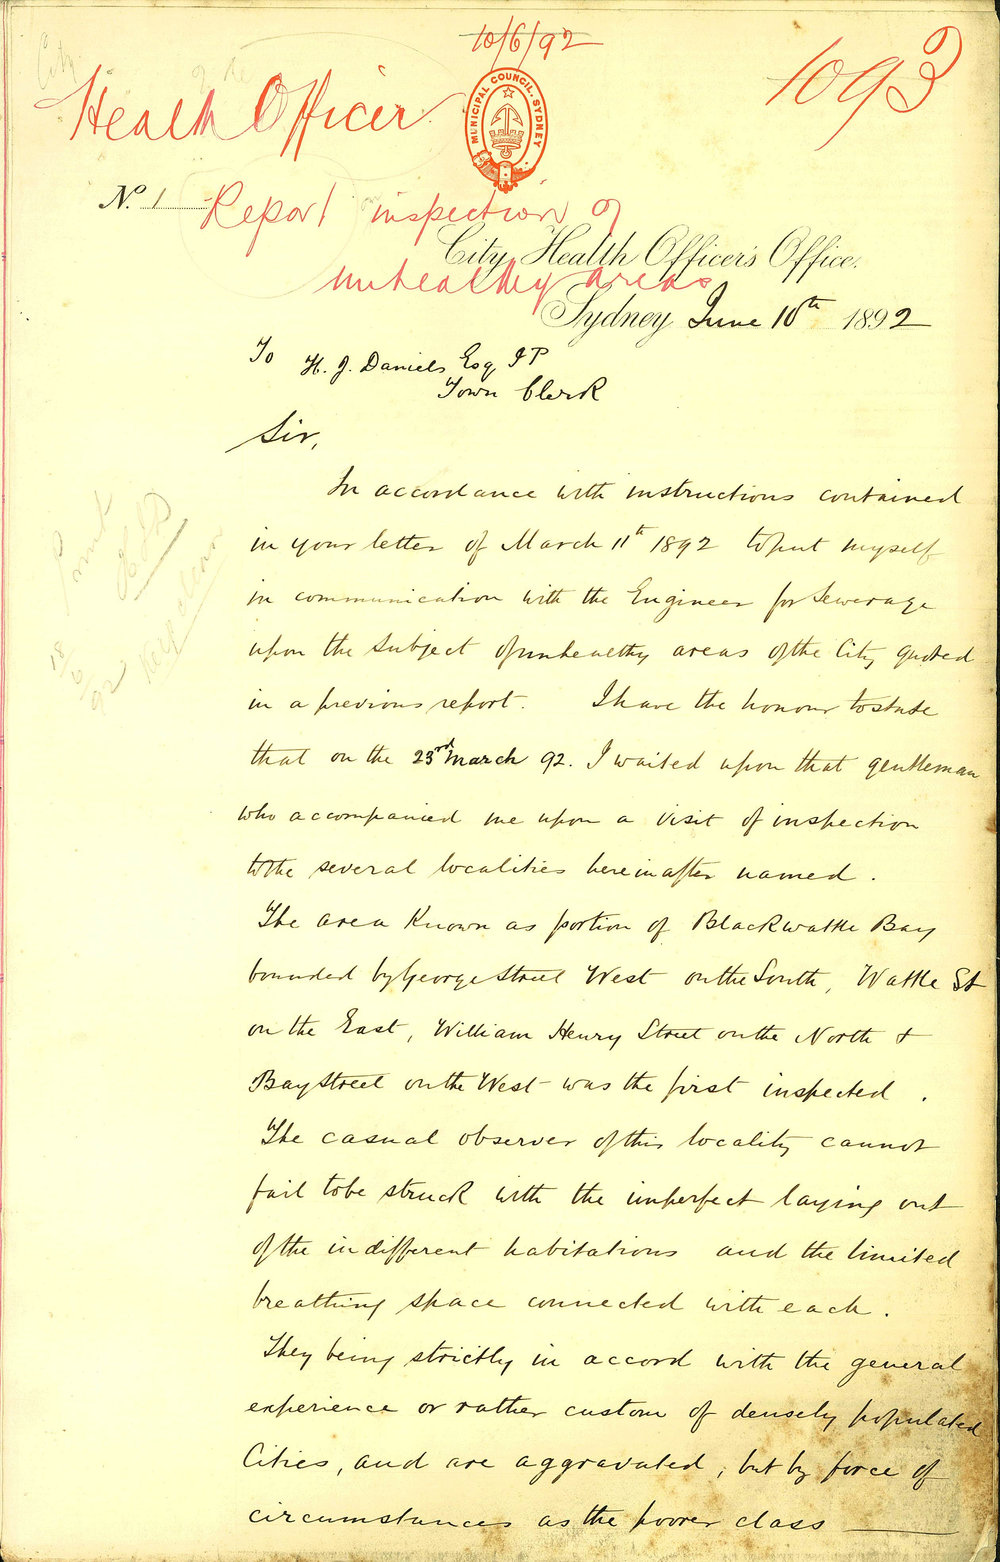 10/6/92
1093
Health Officer
MUNICIPAL COUNCIL. SYDNEY
No. 1
Report inspection of
unhealthy areas
City Health Officer's Office.
Sydney June 10th 1892
To H. J. Daniels Esq JP
Town Clerk
Sir,
In accordance with instructions contained
in your letter of March 11th 1892 to put myself
in communication with the Engineer for Sewerage
upon the subject of unhealthy areas of the City quoted
in a previous report. I have the honour to state
that on the 23rd March 92. I waited upon that gentleman
who accompanied me upon a visit of inspection
to the several localities hereinafter named.
The area known as portion of Blackwattle Bay
bounded by George Street West on the South, Wattle St
on the East, William Henry Street on the North &
Bay Street on the West was the first inspected.
The casual observer of this locality cannot
fail to be struck with the imperfect laying out
of the indifferent habitations and the limited
breathing space connected with each.
They being strictly in accord with the general
experience or rather custom of densely populated
Cities, and are aggravated, but by force of
circumstances as the poorer class
18/6/92